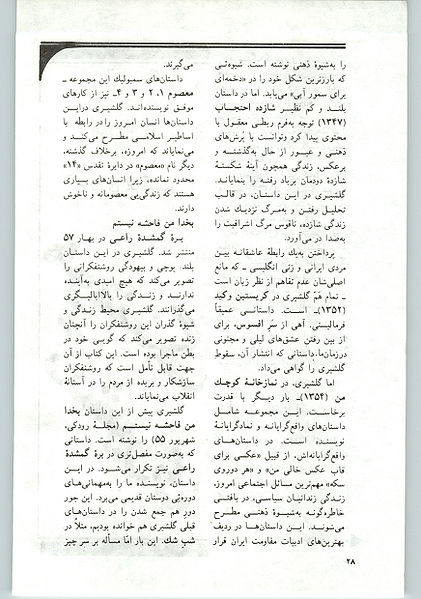 را به‌شیوهٔ ذهنی نوشته است. شیوه‌ئی
که بارزترین شکل خود را در «دخمه‌ای
برای سمور آبی» می‌یابد. اما در داستان
بلند و کم نظیر شازده احتجاب
(۱۳۴۷) توجه به‌فرم ربطی معقول با
محتوی پیدا کرد وتوانست با پُرش‌های
ذهنی و عبور از حال به‌گذشته و
برعکس، زندگی همچون آینهٔ شکستهٔ
شازده دودمان برباد رفته را بنمایاند.
گلشیری در این داستان، در قالب
تحلیل رفتن و به‌مرگ نزدیك شدن
زندگی شازده، ناقوس مرگ اشرافیت را
به‌صدا در می‌آورد.
پرداختن به‌یك رابطهٔ عاشقانه بین
مردی ایرانی و زنی انگلیسی ـ که مانع
اصلی‌شان عدم تفاهم از نظر زبان است
ـ تمام هَمّ گلشیری در کریستین وکید
(۱۳۵۲)ـ است. داستانی عمیقاً
فرمالیستی. آهی از سرِ افسوس، برای
از بین رفتن عشق‌های لیلی و مجنونی
درزمان‌ما.داستانی که انتشار آن، سقوط
گلشیری را گواهی می‌داد.
اما گلشیری، در نمازخانهٔ کوچك
من (۱۳۵۴)ـ بار دیگر با قدرت
برخاست. این مجموعه شامل
داستان‌های واقع‌گرایانه و نمادگرایانهٔ
نویسنده است. در داستان‌های
واقع‌گرایانه‌اش، از قبیل «عکسی برای
قاب عکس خالی من» و «هر دوروی
سکه» مهم‌ترین مسائل اجتماعی امروز،
زندگی زندانیان سیاسی، در بافتی
خاطره‌گونه به‌شیوهٔ ذهنی مطرح
می‌شوند. این داستان‌ها در ردیف
بهترین‌های ادبیات مقاومت ایران قرار
می‌گیرند.
داستان‌های سمبولیك این مجموعه ـ
معصوم ۱، ۲ و ۳ و ۴ـ نیز از کارهای
موفق نویسنده‌اند. گلشیری دراین
داستان‌ها انسان امروز را در رابطه با
اساطیر اسلامی مطرح می‌کند و
می‌نمایاند که امروزه، برخلاف گذشته،
دیگر نام «معصوم» در دایرهٔ تقدس «۱۴»
محدود نمانده، زیرا انسان‌های بسیاری
هستند که زندگی‌یی معصومانه و ناخوش
دارند.
بخدا من فاحشه نیستم
برهٔ گمشدهٔ راعی در بهار ۵۷
منتشر شد. گلشیری در این داستان
بلند، پوچی و بیهودگی روشنفکرانی را
تصویر می‌کند که هیچ امیدی به‌آینده
ندارند و زندگی را باﻻابالیگری
می‌گذرانند. گلشیری محیط زندگی و
شیوهٔ گذران این روشنفکران را آنچنان
زنده تصویر می‌کند که گویی خود در
بطن ماجرا بوده است. این کتاب از آن
جهت قابل تأمل است که روشنفکران
سازشکار و بریده از مردم را در آستانهٔ
انقلاب می‌نمایاند.
گلشیری پیش از این داستان بخدا
من فاحشه نیستم (مجلهٔ رودکی،
شهریور ۵۵) را نوشته است. داستانی
که به‌صورت مفصل‌تری در برهٔ گمشدهٔ
راعی نیز تکرار می‌شود. در این
داستان، نویسنده ما را به‌مهمانی‌های
دوره‌یی دوستان قدیمی می‌برد. این جور
دور هم جمع شدن را در داستان‌های
قبلی گلشیری هم خوانده بودیم، مثلاً در
شب شك. این بار امّا مسأله بر سرِ چیز
۲۸